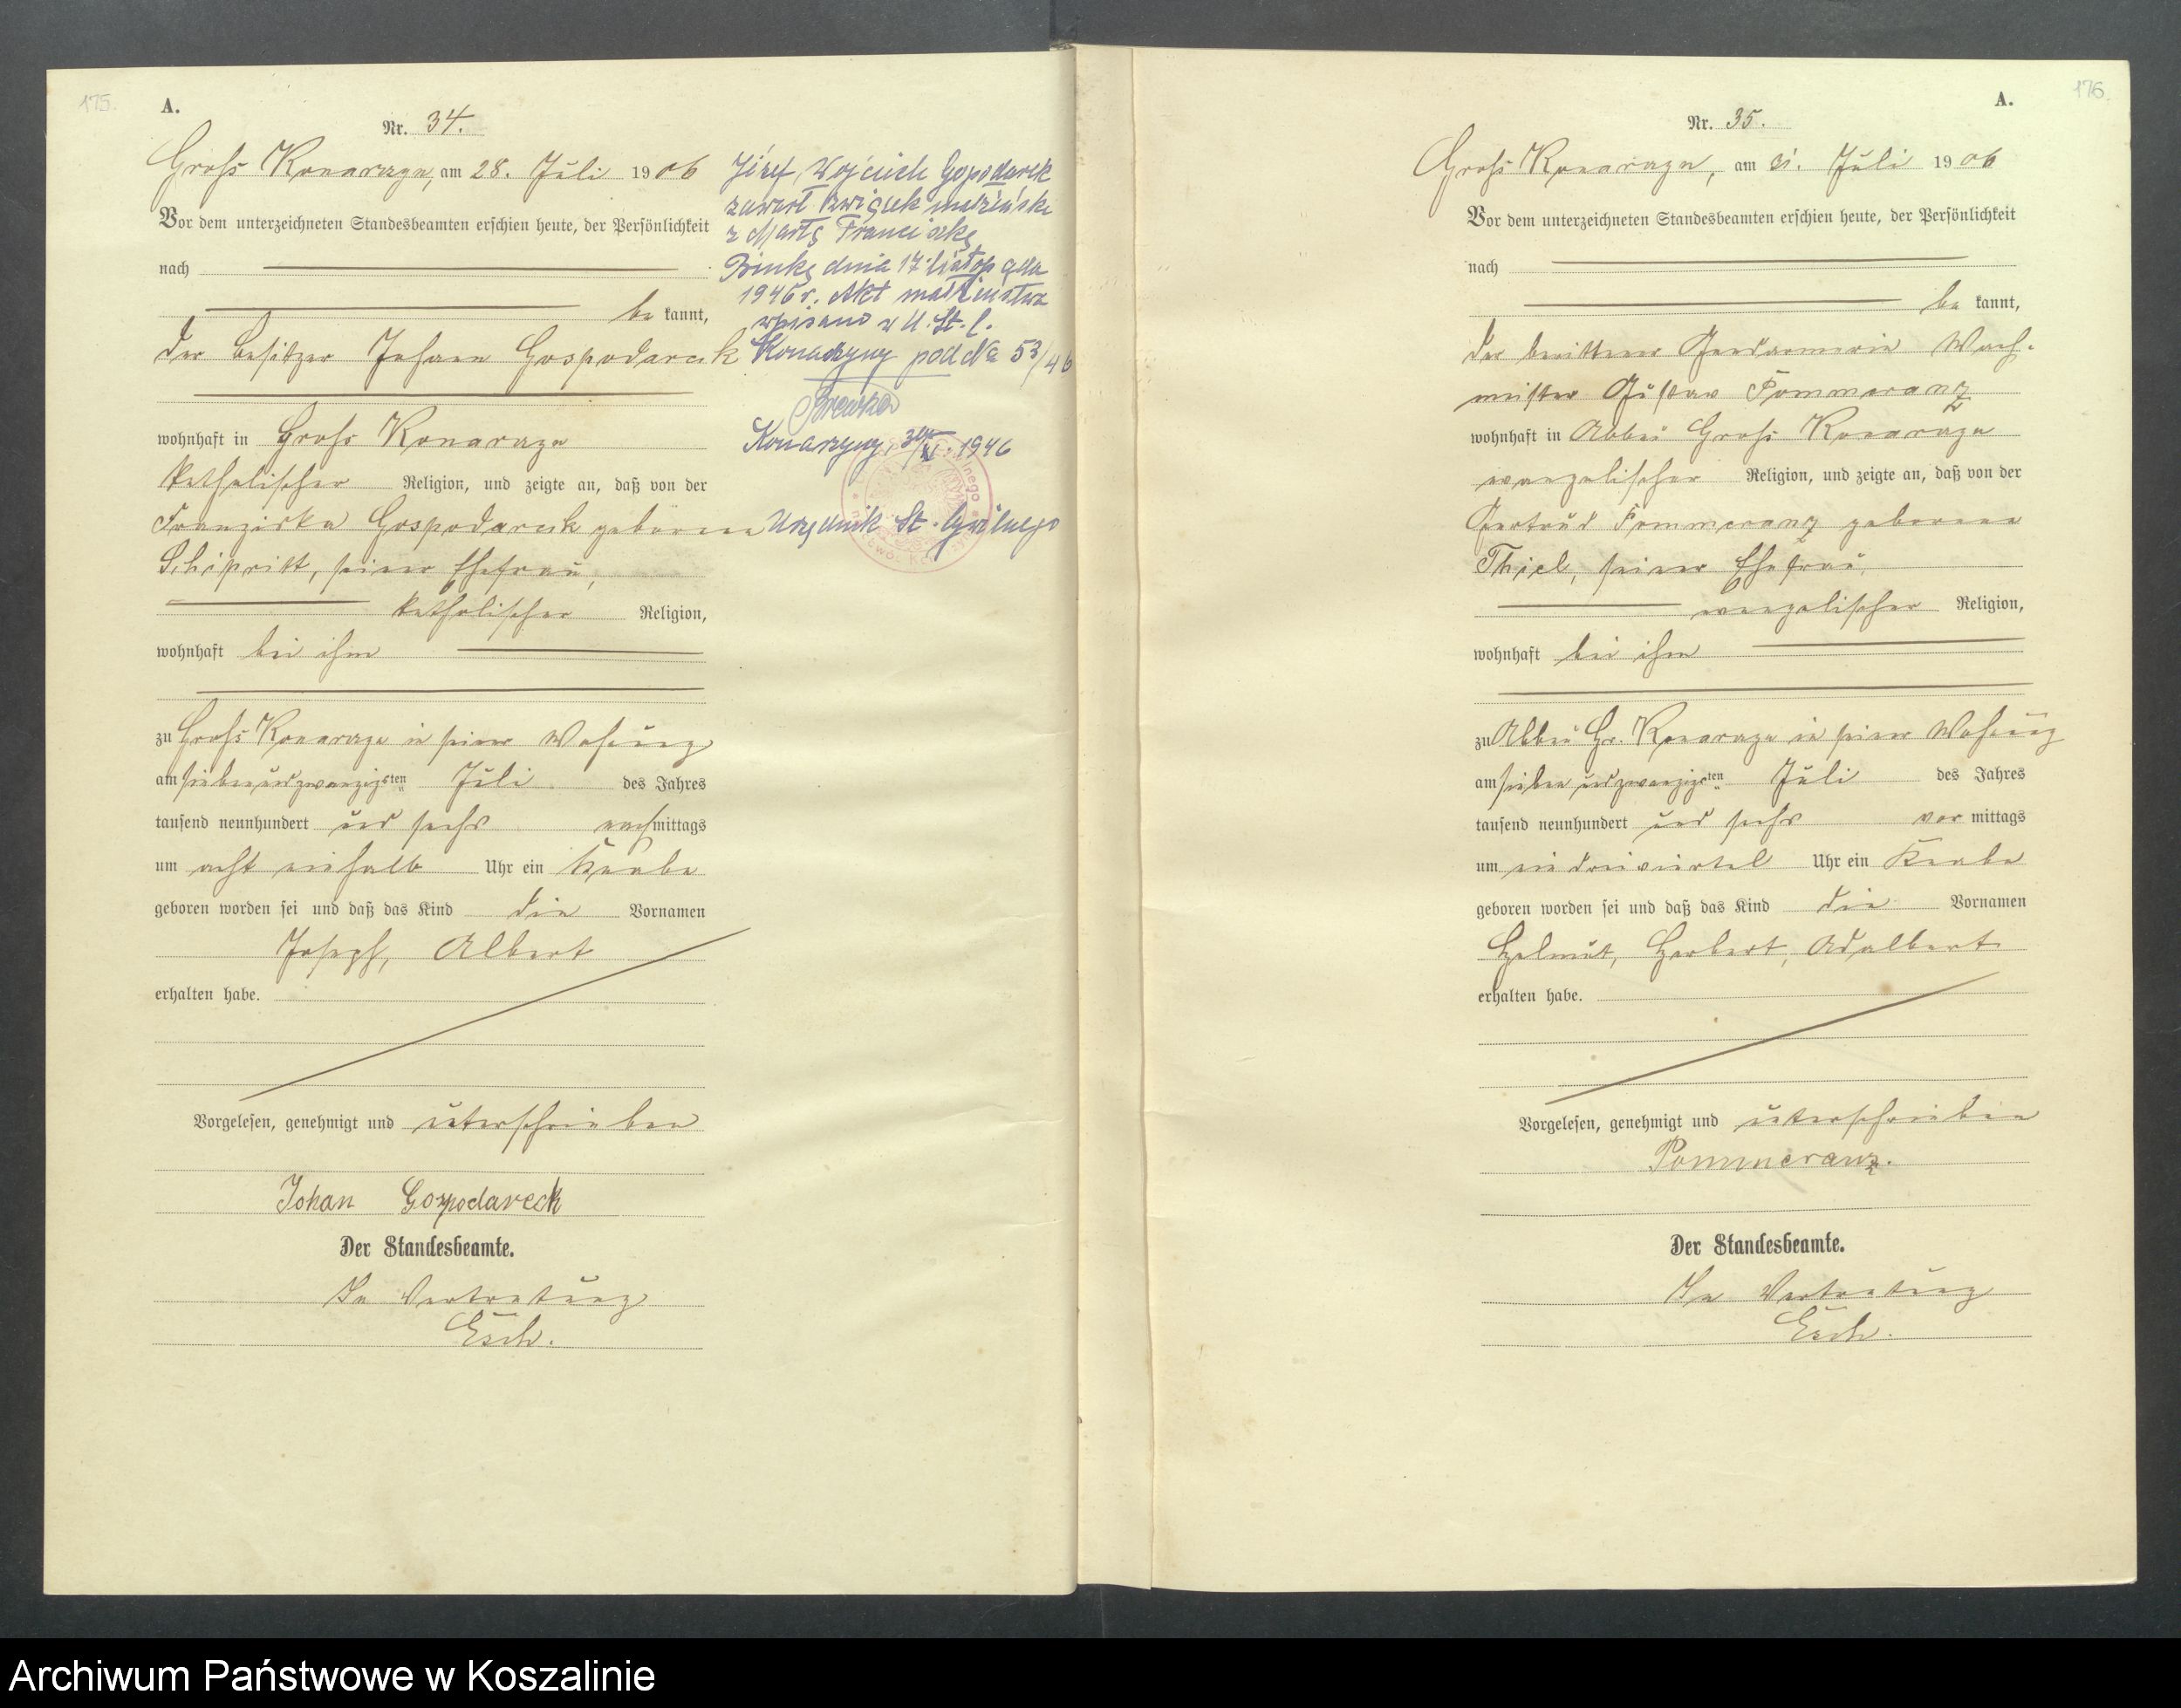 175.
A.
Nr. 34.
Gross Konarzyn, am 28. Juli 1906
Vor dem unterzeichneten Standesbeamten erschien heute, der Persönlichkeit
nach
be kannt,
der Besitzer Johann Gospodareck
wohnhaft in Gross Konarzyn
katholischer Religion, und zeigte an, daß von der
Franziska Gospodareck geborene
Schipritt, seiner Ehefrau,
katholischer Religion,
wohnhaft bei ihm
zu Gross Konarzyn in seiner Wohnung
am sieben und zwanzigsten Juli des Jahres
tausend neunhundert und sechs nachmittags
um acht einhalb Uhr ein Knabe
geboren worden sei und daß das Kind die Vornamen
Joseph, Albert
erhalten habe.
Vorgelesen, genehmigt und unterschrieben
Johan Gospodareck
Der Standesbeamte.
In Vertretung
Esch.
Józef, Wojciech Gospodarek
zawarł związek małżeński
z Martą Franciszką
dnia 17 listopada
1946 r. Akt małżeństwa
wpisano w U. St. C.
Konarzyny pod № 53/46
Konarzyny, 1946
Urzędnik St. Cywilnego
176.
A.
Nr. 35.
Gross Konarzyn, am 31. Juli 1906
Vor dem unterzeichneten Standesbeamten erschien heute, der Persönlichkeit
nach
be kannt,
der berittene Gendarmerie Wach-
meister Gustav Pommeranz
wohnhaft in Abbau Gross Konarzyn
evangelischer Religion, und zeigte an, daß von der
Gertrud Pommeranz geborene
Thiel, seiner Ehefrau,
evangelischer Religion,
wohnhaft bei ihm
zu Abbau Gr. Konarzyn in seiner Wohnung
am sieben und zwanzigsten Juli des Jahres
tausend neunhundert und sechs vormittags
um ein dreiviertel Uhr ein Knabe
geboren worden sei und daß das Kind die Vornamen
Helmut, Herbert, Adalbert
erhalten habe.
Vorgelesen, genehmigt und unterschrieben
Pommeranz.
Der Standesbeamte.
In Vertretung
Esch.
Archiwum Państwowe w Koszalinie